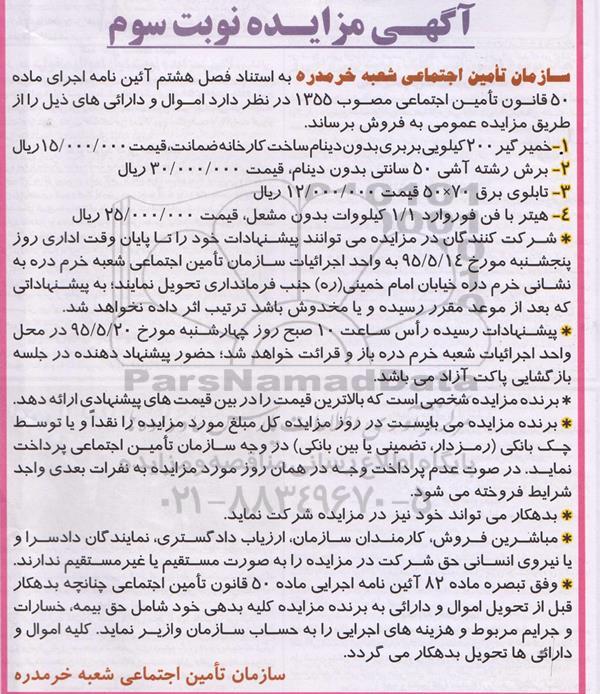 آگهی مزایده نوبت سوم
سازمان تأمین اجتماعی شعبه خرمدره به استناد فصل هشتم آئین نامه اجرای ماده
۵۰ قانون تأمین اجتماعی مصوب ۱۳۵۵ در نظر دارد اموال و دارائی های ذیل را از
طریق مزایده عمومی به فروش برساند.
۱- خمیر گیر ۲۰۰ کیلویی بربری بدون دینام ساخت کارخانه ضمانت، قیمت ۱۵/۰۰۰/۰۰۰ ریال
۲- برش رشته آشی ۵۰ سانتی بدون دینام، قیمت ۳۰/۰۰۰/۰۰۰ ریال
۳- تابلوی برق ۷۰×۵۰ قیمت ۱۲/۰۰۰/۰۰۰ ریال
۴- هیتر با فن فوروارد ۱/۱ کیلووات بدون مشعل، قیمت ۲۵/۰۰۰/۰۰۰ ریال
* شرکت کنندگان در مزایده می توانند پیشنهادات خود را تا پایان وقت اداری روز
پنجشنبه مورخ ۹۵/۵/۱۴ به واحد اجرائیات سازمان تأمین اجتماعی شعبه خرم دره به
نشانی خرم دره خیابان امام خمینی(ره) جنب فرمانداری تحویل نمایند؛ به پیشنهاداتی
که بعد از موعد مقرر رسیده و یا مخدوش باشد ترتیب اثر داده نخواهد شد.
* پیشنهادات رسیده رأس ساعت ۱۰ صبح روز چهارشنبه مورخ ۹۵/۵/۲۰ در محل
واحد اجرائیات شعبه خرم دره باز و قرائت خواهد شد؛ حضور پیشنهاد دهنده در جلسه
بازگشایی پاکت آزاد می باشد.
ParsNamadData
* برنده مزایده شخصی است که بالاترین قیمت را در بین قیمت های پیشنهادی ارائه دهد.
* برنده مزایده می بایست در روز مزایده کل مبلغ مورد مزایده را نقداً و یا توسط
چک بانکی (رمزدار، تضمینی یا بین بانکی) در وجه سازمان تأمین اجتماعی پرداخت
نماید. در صورت عدم پرداخت وجه در همان روز مورد مزایده به نفرات بعدی واجد
شرایط فروخته می شود.
۰۲۱-۸۸۳۴۹۶۷۰-۵
* بدهکار می تواند خود نیز در مزایده شرکت نماید.
* مباشرین فروش، کارمندان سازمان، ارزیاب دادگستری، نمایندگان دادسرا و
یا نیروی انسانی حق شرکت در مزایده را به صورت مستقیم یا غیرمستقیم ندارند.
* وفق تبصره ماده ۸۲ آئین نامه اجرایی ماده ۵۰ قانون تأمین اجتماعی چنانچه بدهکار
قبل از تحویل اموال و دارائی به برنده مزایده کلیه بدهی خود شامل حق بیمه، خسارات
و جرایم مربوط و هزینه های اجرایی را به حساب سازمان واریز نماید. کلیه اموال و
دارائی ها تحویل بدهکار می گردد.
سازمان تأمین اجتماعی شعبه خرمدره